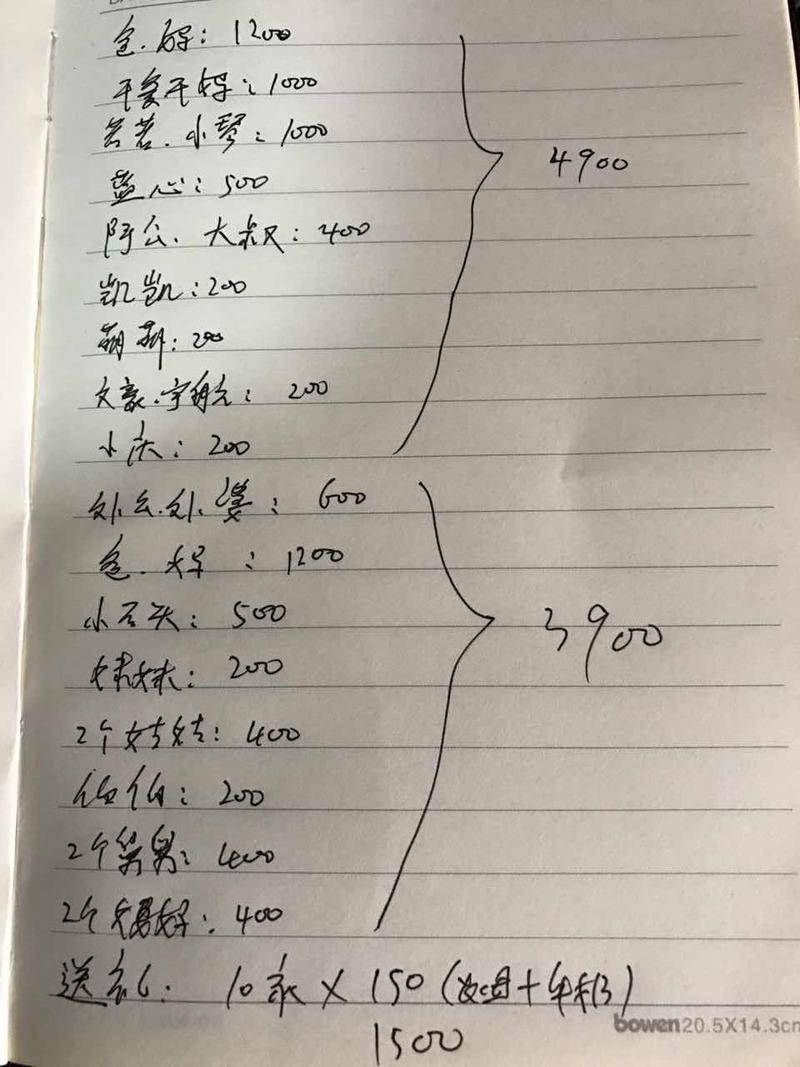 爸.妈: 1200
干爹干妈: 1000
苦苦.小琴: 1000
蓝心: 500
阿公. 大叔: 400
凯凯: 200
萌萌: 200
文豪.宇航: 200
小庆: 200
4900
外公.外婆: 600
爸.妈: 1200
小石头: 500
妹妹: 200
2个姑姑: 400
伯伯: 200
2个舅舅: 400
2个舅妈: 400
3900
送礼: 10家 × 150 (烟+年糕)
1500
bowen 20.5X14.3cm